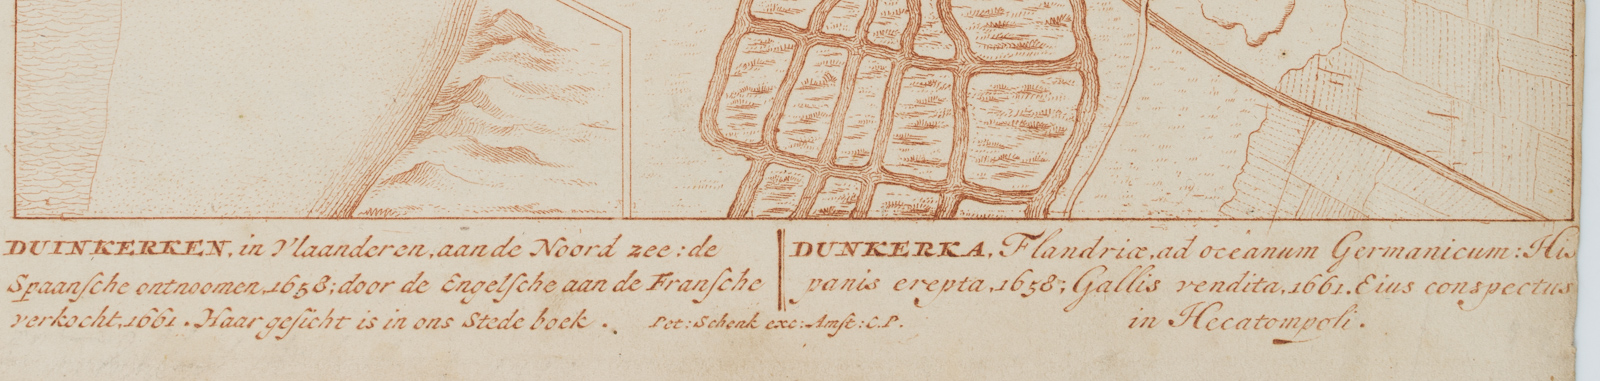 DUINKERKEN, in Vlaanderen, aan de Noord zee: de
Spaansche ontnoomen, 1658; door de Engelsche aan de Fransche
verkocht, 1661. Haar gesicht is in ons Stede boek.
Pet: Schenk exc: Amst: C.P.
DUNKERKA, Flandriæ, ad oceanum Germanicum: His
panis erepta, 1658; Gallis vendita, 1661. Eius conspectus
in Hecatompoli.